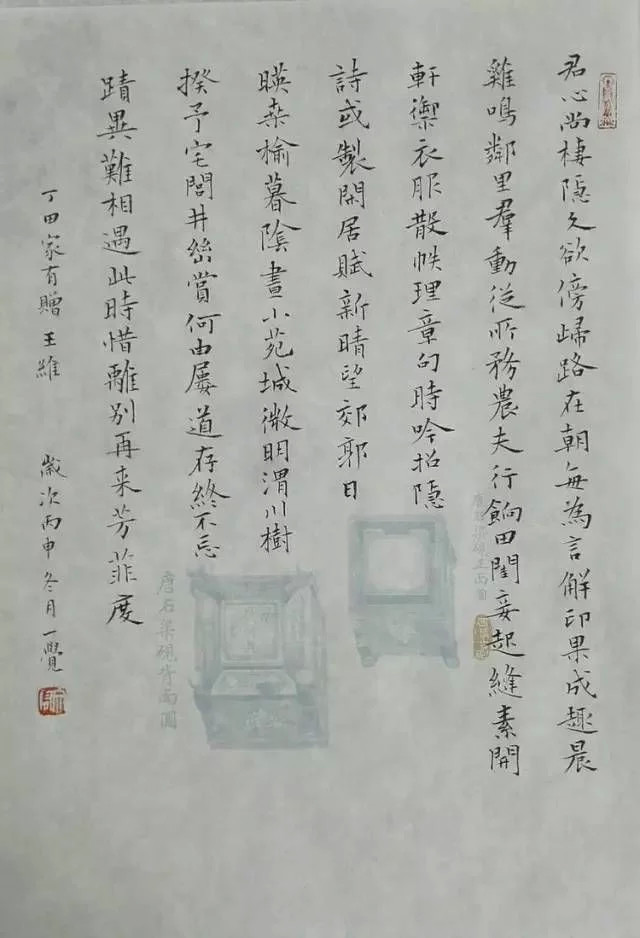 君心尚棲隱久欲傍歸路在朝每為言解印果成趣晨
雞鳴鄰里羣動從所務農夫行餉田閨妾起縫素開
軒禦衣服散帙理章句時吟招隱
詩或製閒居賦新晴望郊郭日
暎桑榆暮陰晝小苑城微明渭川樹
揆予宅閭井幽賞何由屢道存終不忘
蹟異難相遇此時惜離別再来芳菲度
丁田家有贈 王維 歲次丙申冬月一覺
唐石渠硯正面圖
唐石渠硯背面圖